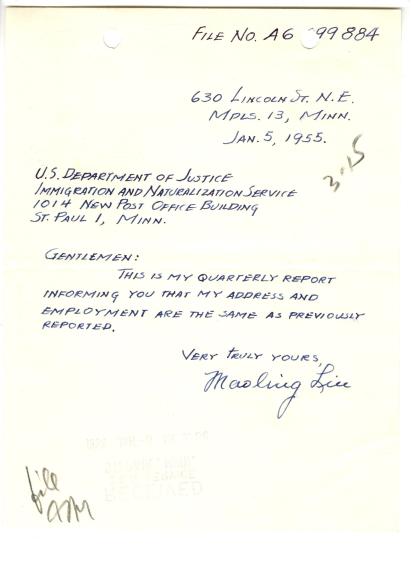 FILE NO. A6 99 884
630 LINCOLN ST. N.E.
MPLS. 13, MINN.
JAN. 5, 1955.
3-15
U.S. DEPARTMENT OF JUSTICE
IMMIGRATION AND NATURALIZATION SERVICE
1014 NEW POST OFFICE BUILDING
ST. PAUL 1, MINN.
GENTLEMEN:
THIS IS MY QUARTERLY REPORT
INFORMING YOU THAT MY ADDRESS AND
EMPLOYMENT ARE THE SAME AS PREVIOUSLY
REPORTED.
VERY TRULY YOURS,
Maoling Liu
RECEIVED
file